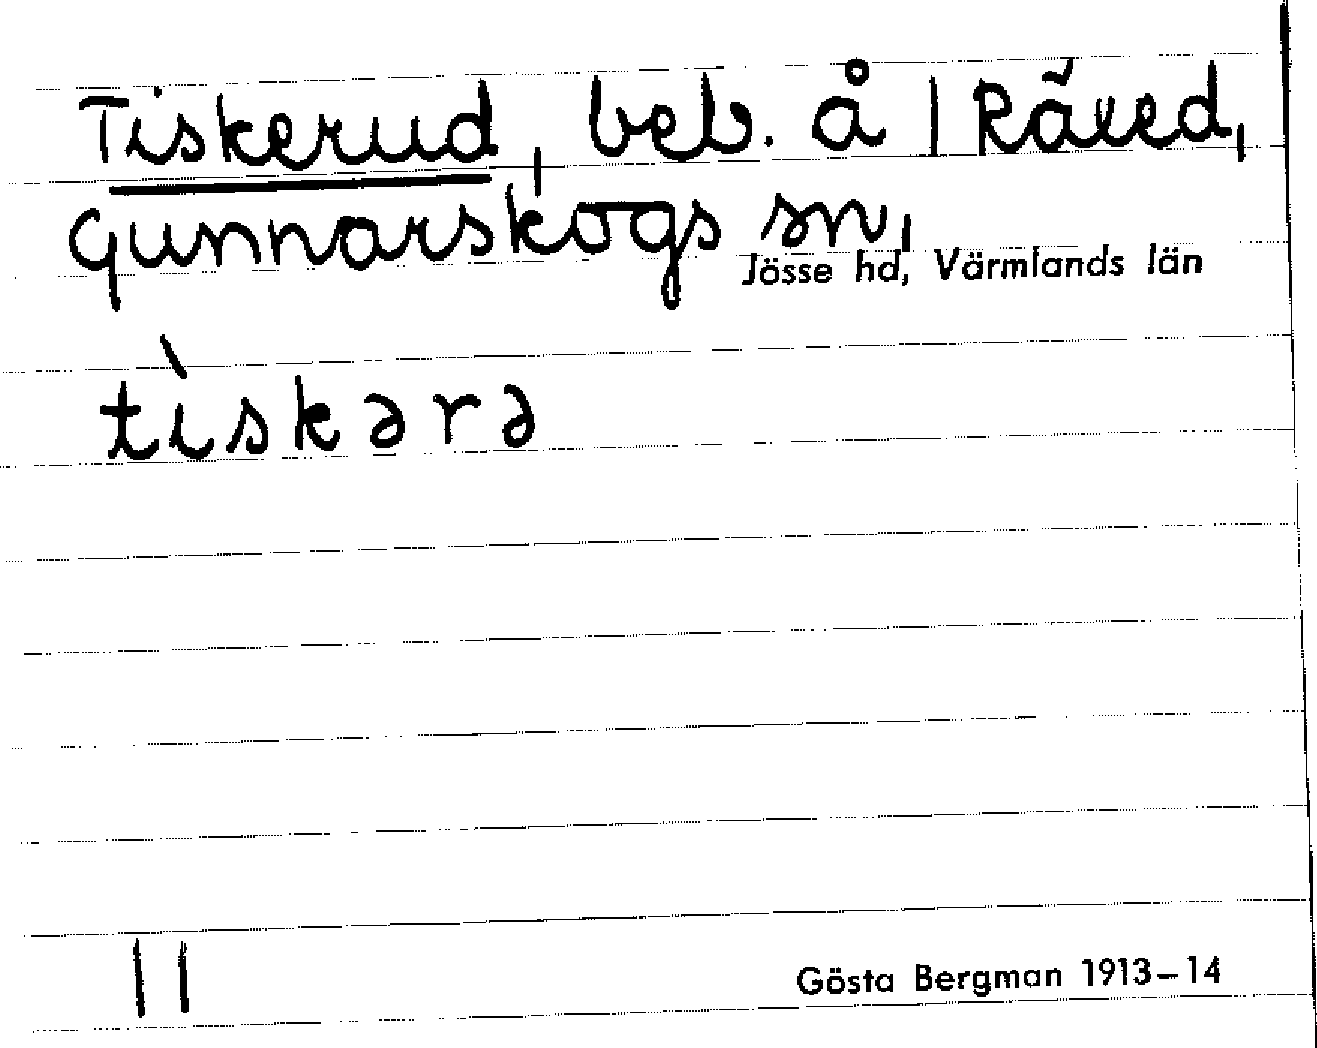 Tiskerud, beb. å 1 Räved,
Gunnarskogs sn,
Jösse hd, Värmlands län
tìskərə
11
Gösta Bergman 1913–14